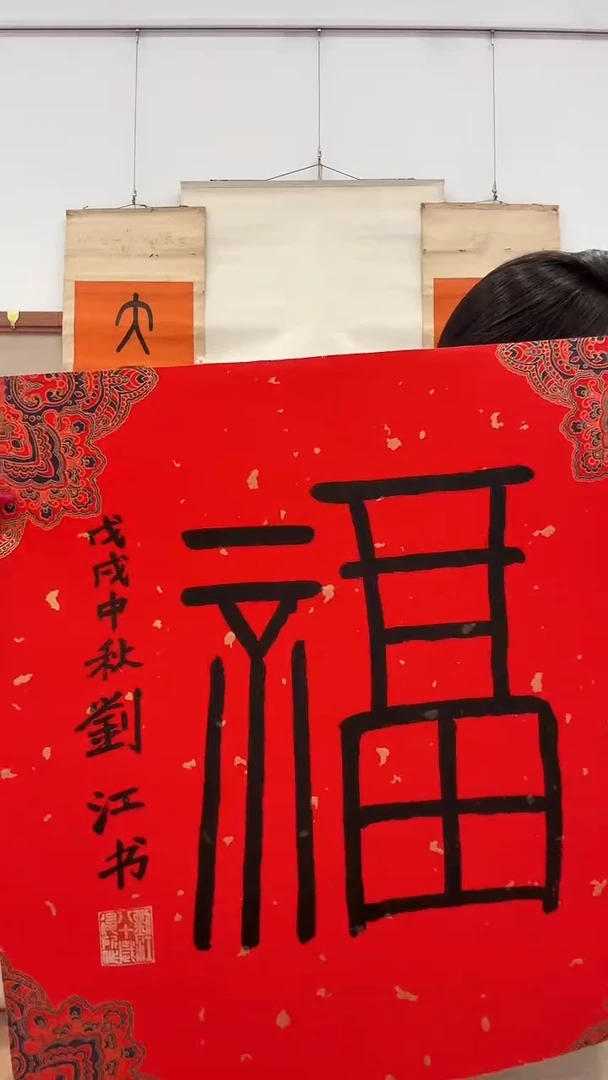 福
戊戌中秋劉江书
大